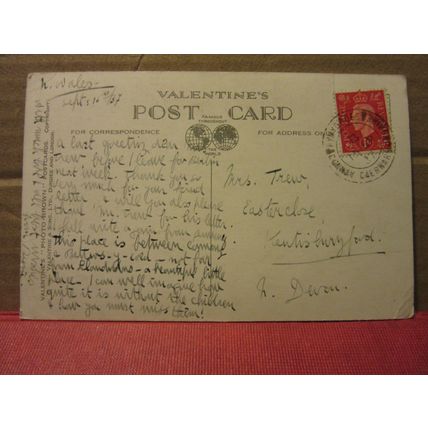 N. Wales.
Sept: 10th/37
VALENTINE'S
POST CARD
FAMOUS
THROUGHOUT
THE
WORLD
FOR CORRESPONDENCE
FOR ADDRESS ONLY
a last greeting dear
Mrs Trew before I leave for
next week. Thank you so
very much for your kind
letter, & will you also please
thank Mr. Trew for his letter.
I shall write again from
This place is between
& Bettws-y-coed not far
from Llandudno - a beautiful little
place. I can well imagine how
quiet it is without the children
& how you must miss them!
Mrs. Trew,
Easterclose,
Kentisburyford.
N. Devon.
VALENTINE'S "PHOTO BROWN" POSTCARDS COPYRIGHT
VALENTINE & SONS, LTD., DUNDEE AND LONDON